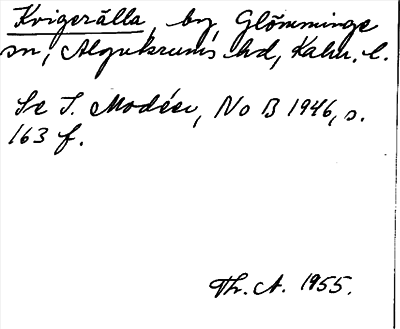 Kvigerälla, by, Glömminge
sn, Algutsrums hd, Kalm. l.
Se I. Modéer, NoB 1946, s.
163 f.
Th. A. 1955.